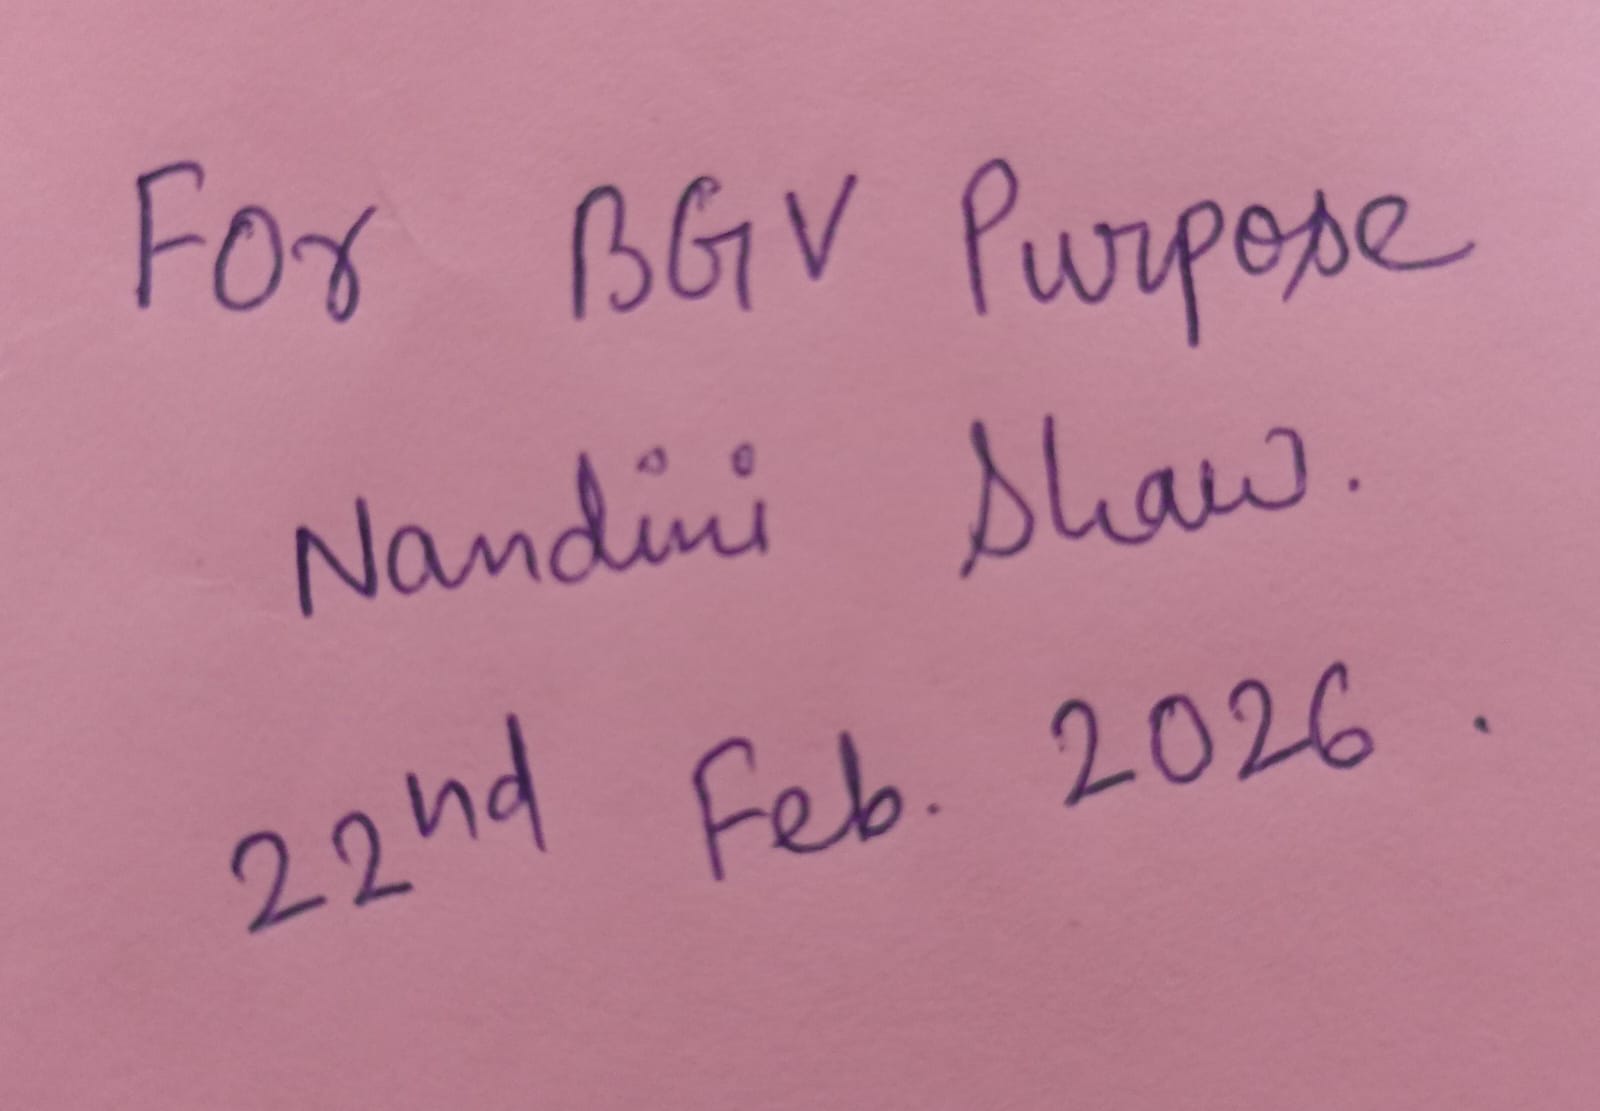 For BGV Purpose
Nandini Shaw.
22nd Feb. 2026.